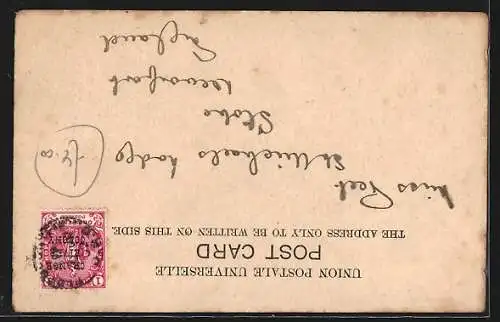 UNION POSTALE UNIVERSELLE
POST CARD
THE ADDRESS ONLY TO BE WRITTEN ON THIS SIDE.
Miss Peek
St Michaels Lodge
Stoke
Devonport
England